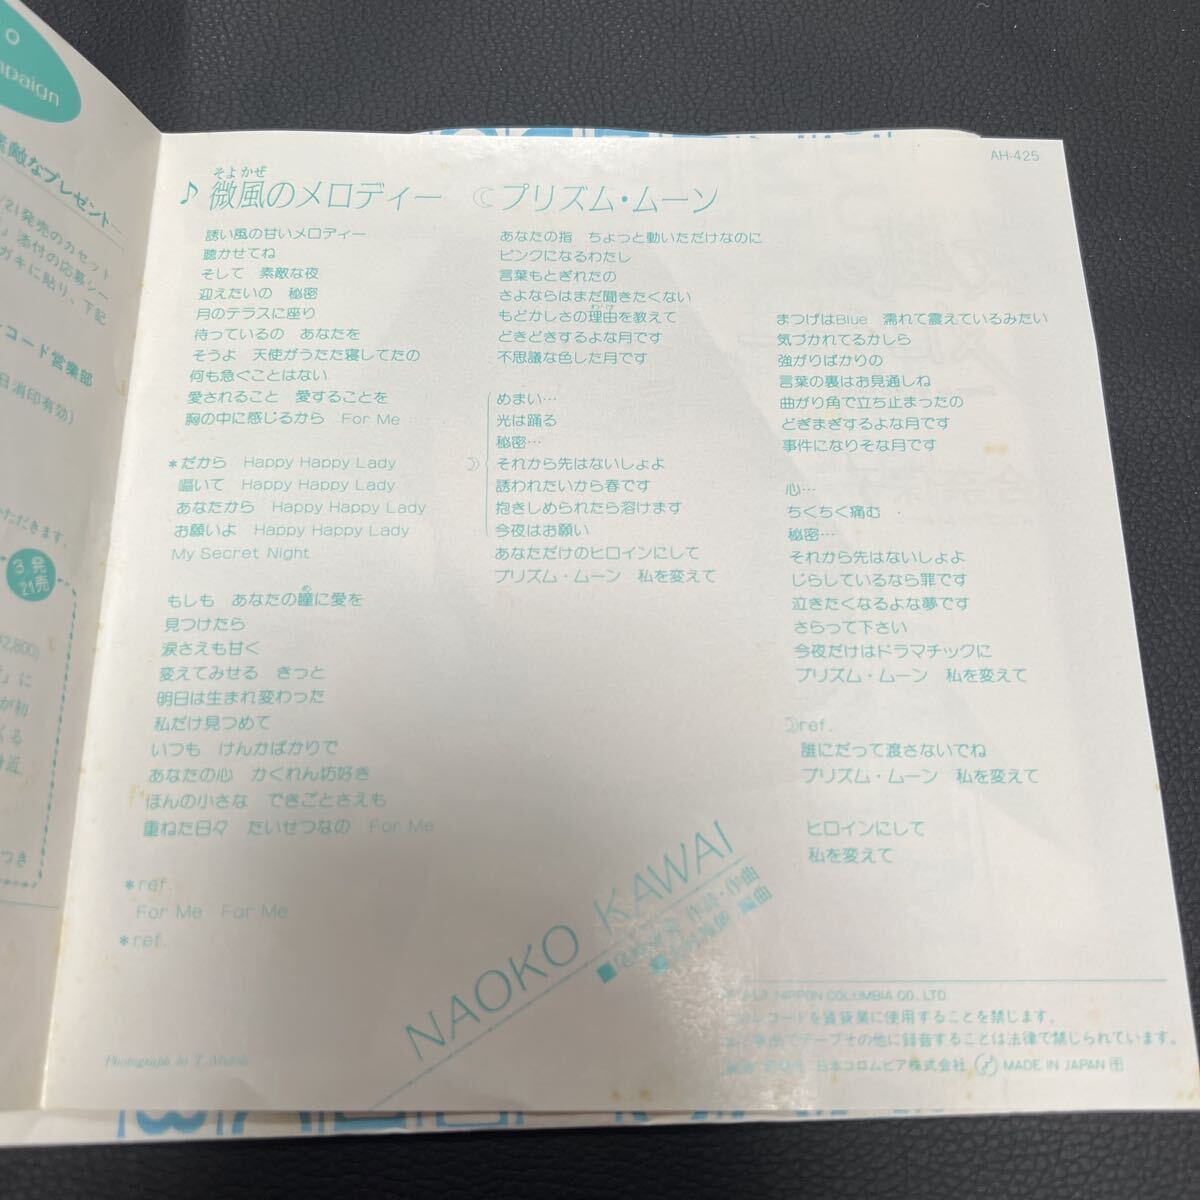 o
mpaign
素敵なプレゼント
/21発売のカセット
』添付の応募シー
ガキに貼り、下記
コード営業部
日消印有効)
ただきます。
3発
21売
¥2,800)
』に
が初
くる
身近
つき
AH-425
そよかぜ
♪微風のメロディー
誘い風の甘いメロディー
聴かせてね
そして 素敵な夜
迎えたいの 秘密
月のテラスに座り
待っているの あなたを
そうよ 天使がうたた寝してたの
何も急ぐことはない
愛されること 愛することを
胸の中に感じるから For Me
*だから Happy Happy Lady
囁いて Happy Happy Lady
あなたから Happy Happy Lady
お願いよ Happy Happy Lady
My Secret Night
もしも あなたの瞳に愛を
め
見つけたら
涙さえも甘く
変えてみせる きっと
明日は生まれ変わった
私だけ見つめて
いつも けんかばかりで
あなたの心 かくれん坊好き
ほんの小さな できごとさえも
重ねた日々 たいせつなの For Me
*ref.
For Me For Me
*ref.
☾プリズム・ムーン
あなたの指 ちょっと動いただけなのに
ピンクになるわたし
言葉もとぎれたの
さよならはまだ聞きたくない
わけ
もどかしさの理由を教えて
どきどきするよな月です
不思議な色した月です
めまい…
光は踊る
秘密…
それから先はないしょよ
誘われたいから春です
抱きしめられたら溶けます
今夜はお願い
あなただけのヒロインにして
プリズム・ムーン 私を変えて
まつげはBlue 濡れて震えているみたい
気づかれてるかしら
強がりばかりの
言葉の裏はお見通しね
曲がり角で立ち止まったの
どぎまぎするよな月です
事件になりそな月です
心…
ちくちく痛む
秘密…
それから先はないしょよ
じらしているなら罪です
泣きたくなるよな夢です
さらって下さい
今夜だけはドラマチックに
プリズム・ムーン 私を変えて
☽ref.
誰にだって渡さないでね
プリズム・ムーン 私を変えて
ヒロインにして
私を変えて
NAOKO KAWAI
作詩・作曲
編曲
NIPPON COLUMBIA CO., LTD.
レコードを賃貸業に使用することを禁じます。
テープその他に録音することは法律で禁じられています。
日本コロムビア株式会社 MADE IN JAPAN
Photograph by T.